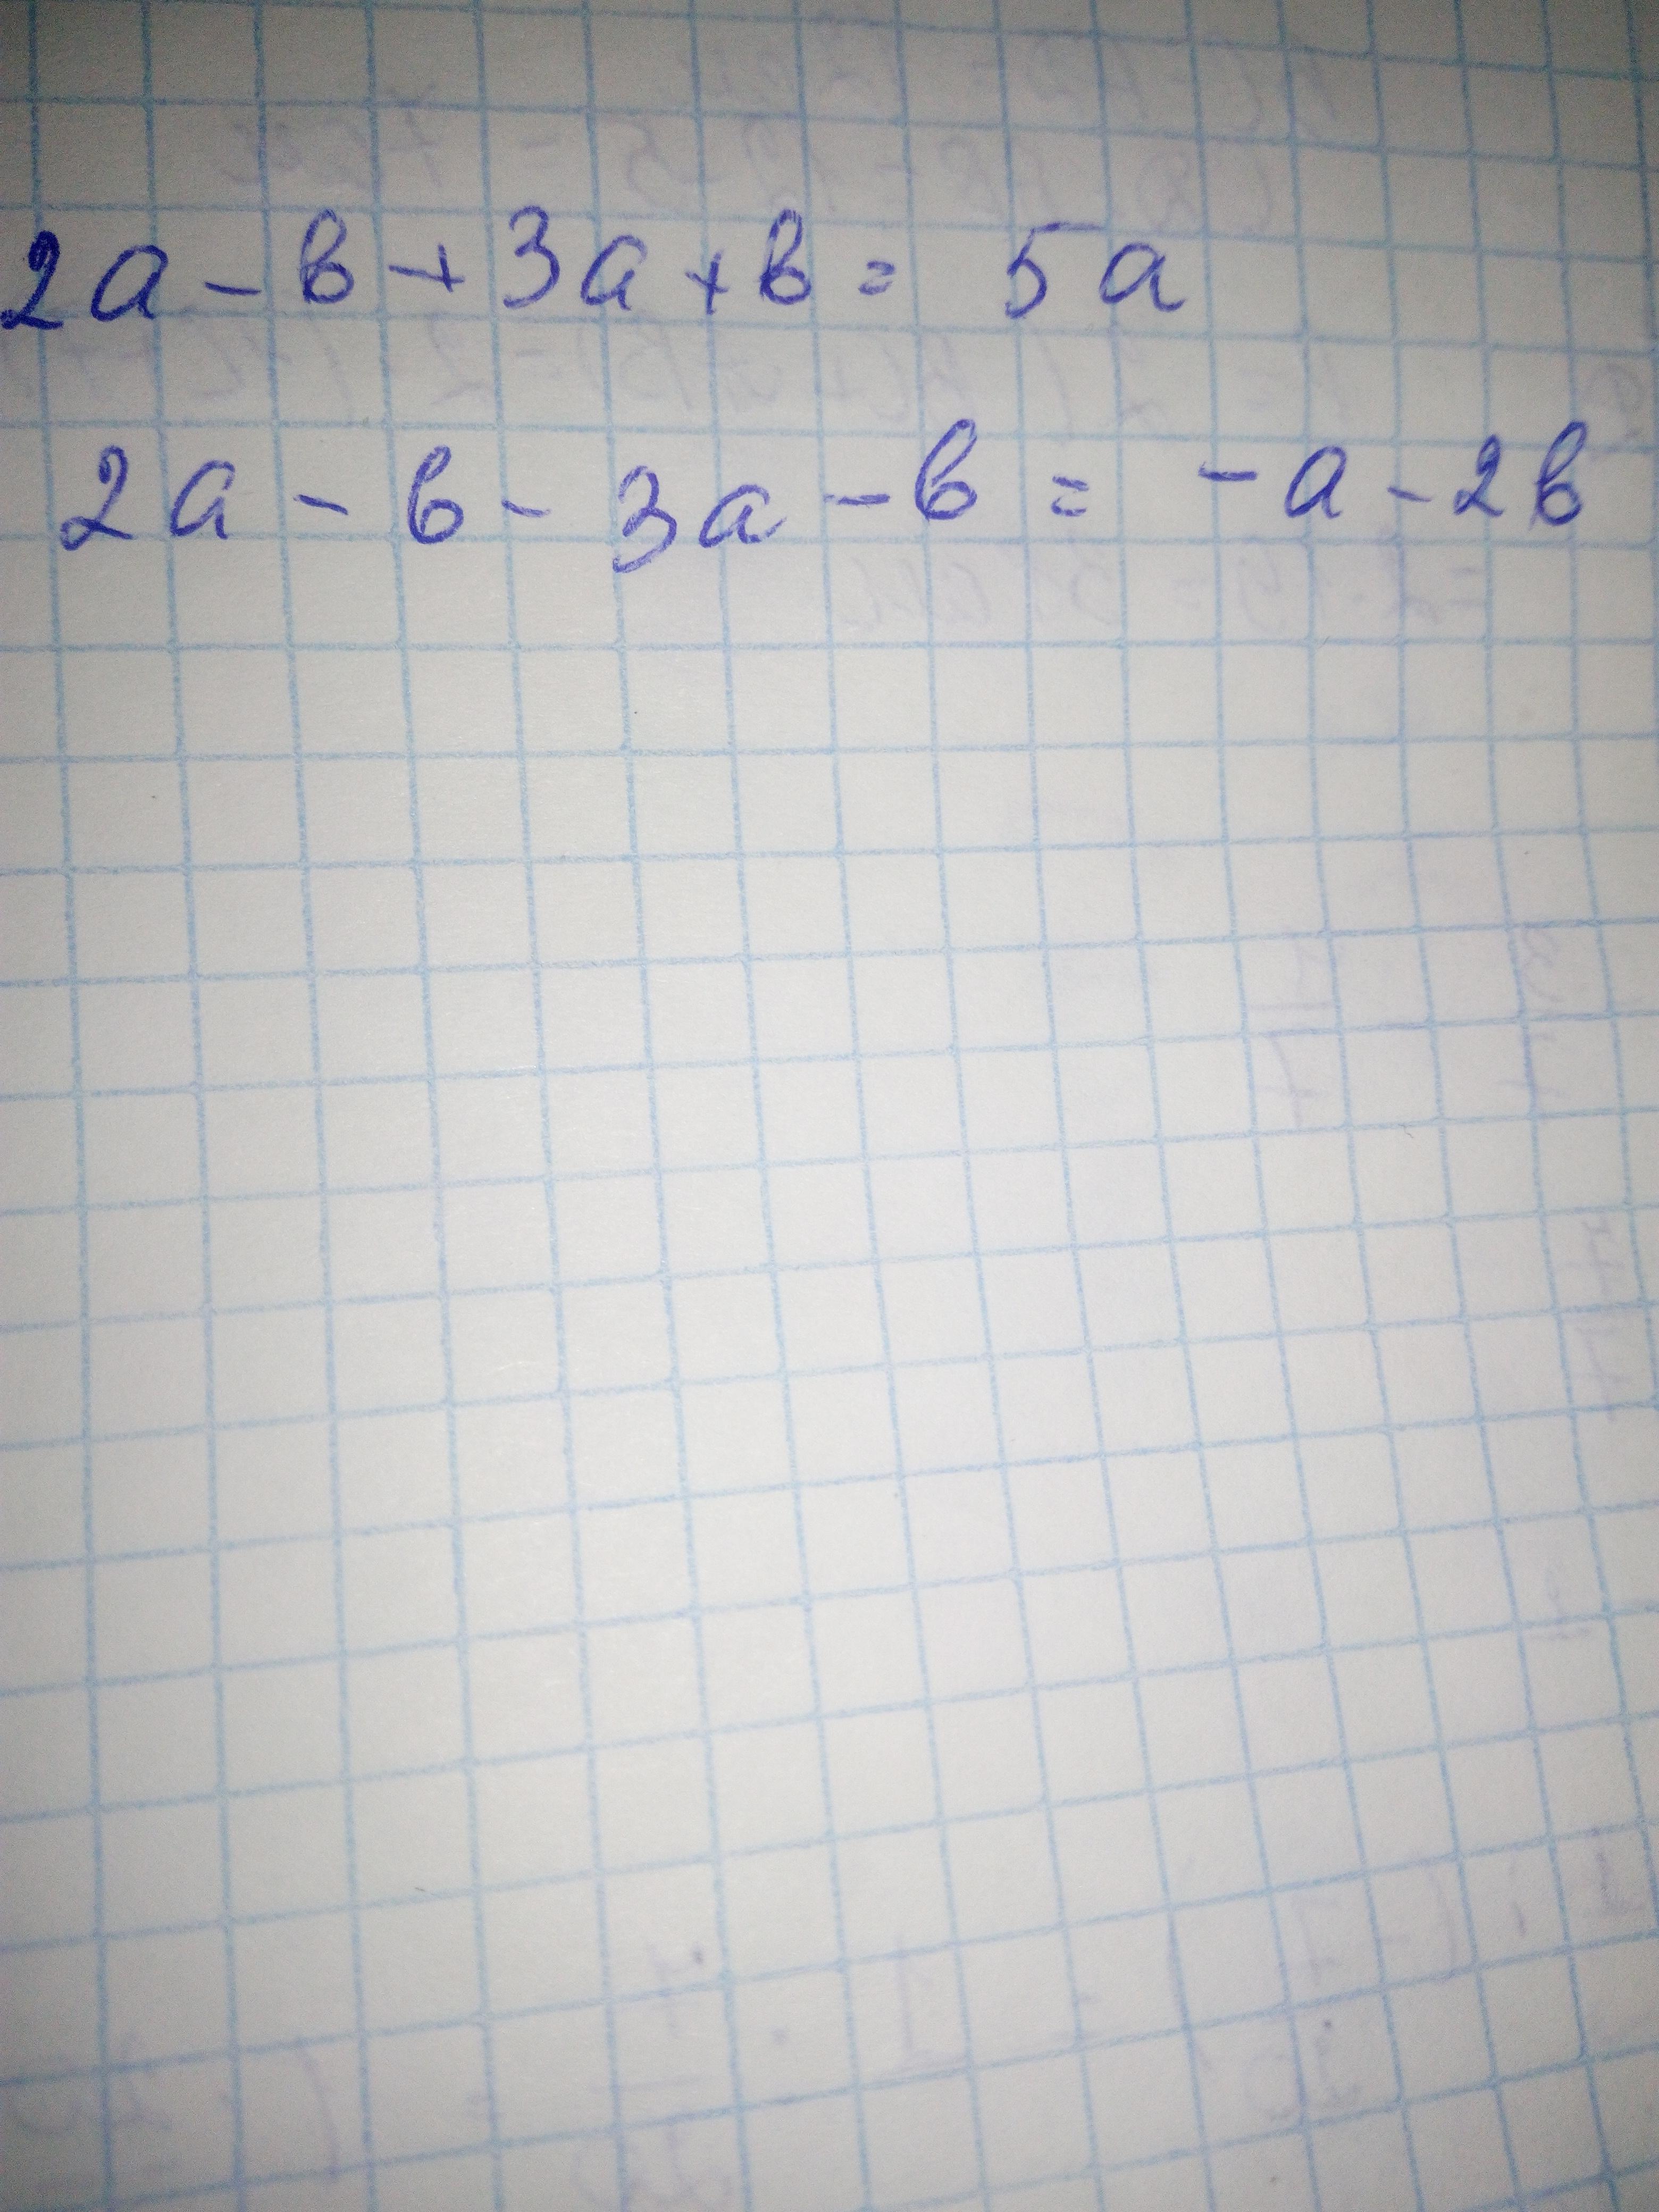 2a - b + 3a + b = 5a
2a - b - 3a - b = -a - 2b